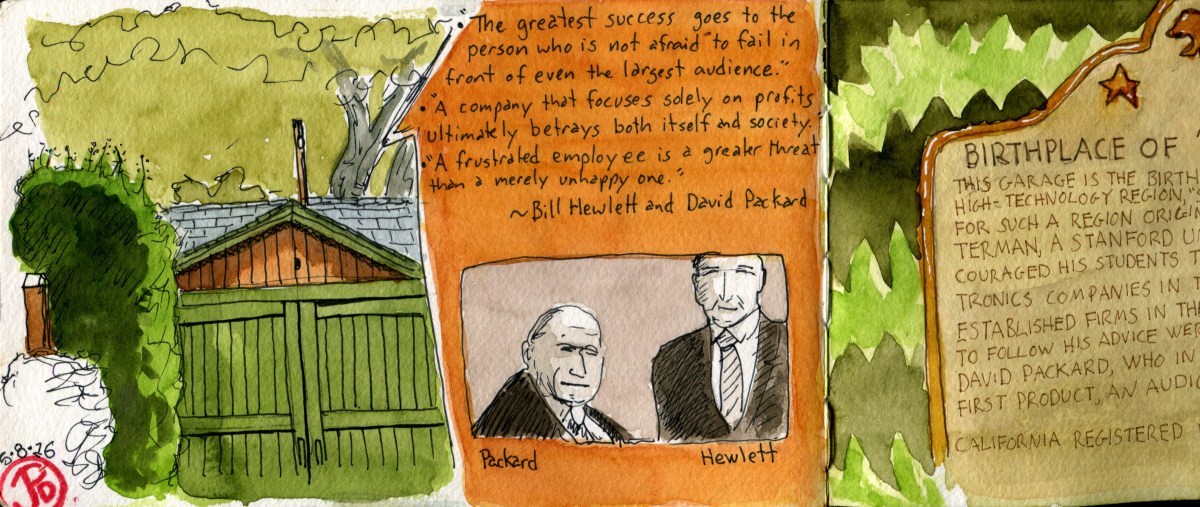 • "The greatest success goes to the
person who is not afraid to fail in
front of even the largest audience."
• "A company that focuses solely on profits
ultimately betrays both itself and society.
• "A frustrated employee is a greater threat
than a merely unhappy one."
~Bill Hewlett and David Packard
Packard
Hewlett
5·8·26
BIRTHPLACE OF
THIS GARAGE IS THE BIRTH
HIGH-TECHNOLOGY REGION, "S
FOR SUCH A REGION ORIGI
TERMAN, A STANFORD U
COURAGED HIS STUDENTS T
TRONICS COMPANIES IN
ESTABLISHED FIRMS IN THE
TO FOLLOW HIS ADVICE WER
DAVID PACKARD, WHO IN
FIRST PRODUCT, AN AUDI
CALIFORNIA REGISTERED